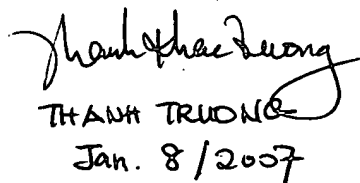 Thanh Khac Truong
THANH TRUONG
Jan. 8/2007